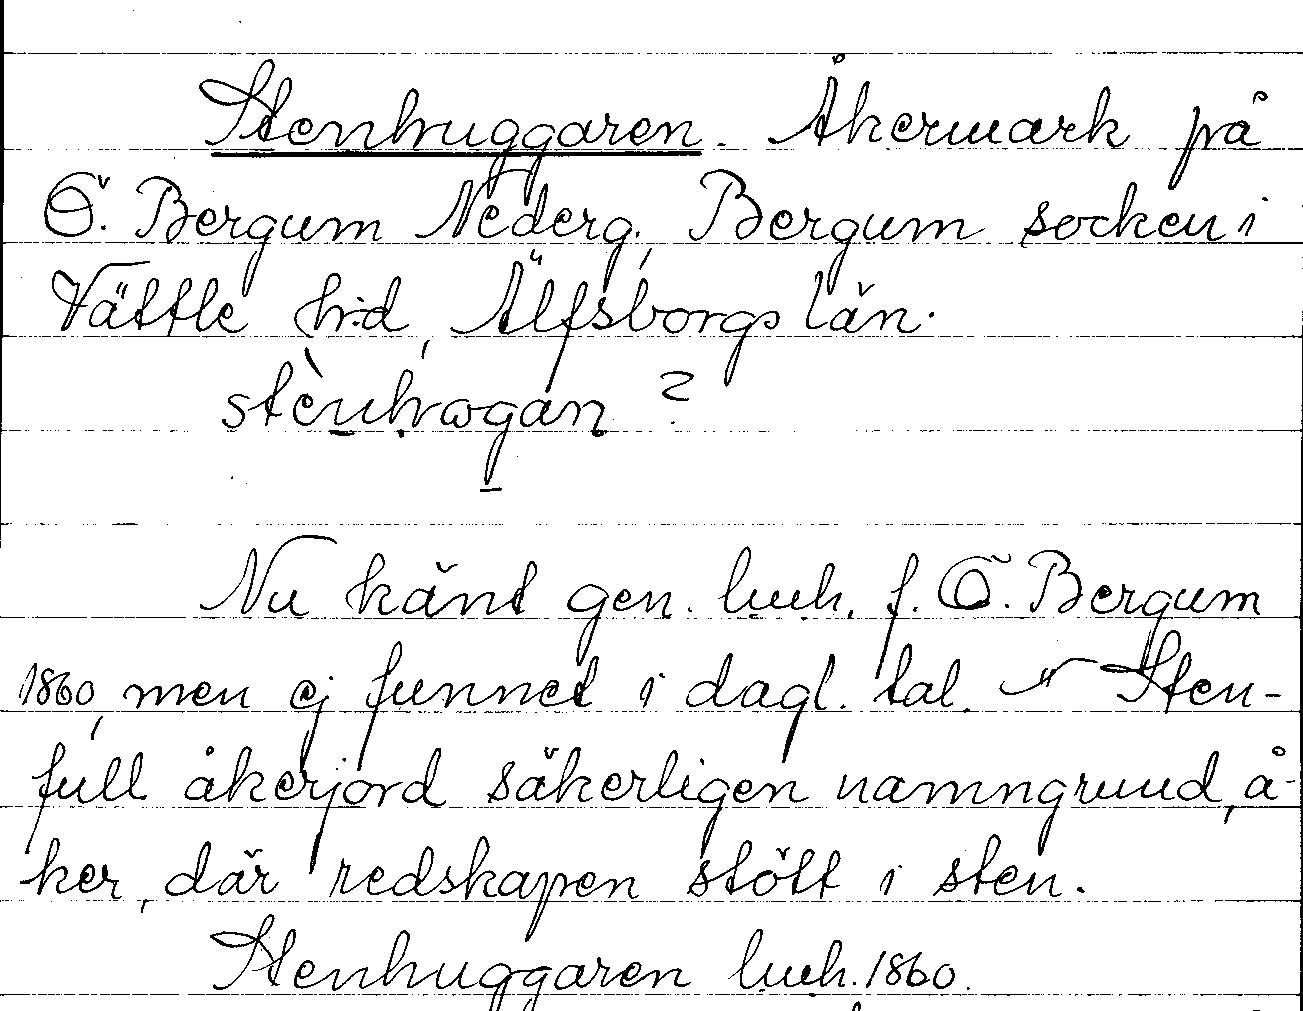 Stenhuggaren. Åkermark på
Ö. Bergum Nederg., Bergum socken i
Vättle h:d, Älfsborgs län.
stènhogan ?
Nu känt gen. lwh. f. Ö. Bergum
1860, men ej funnet i dagl. tal. — Sten-
full åkerjord säkerligen namngrund, å-
ker, där redskapen stött i sten.
Stenhuggaren lwh. 1860.